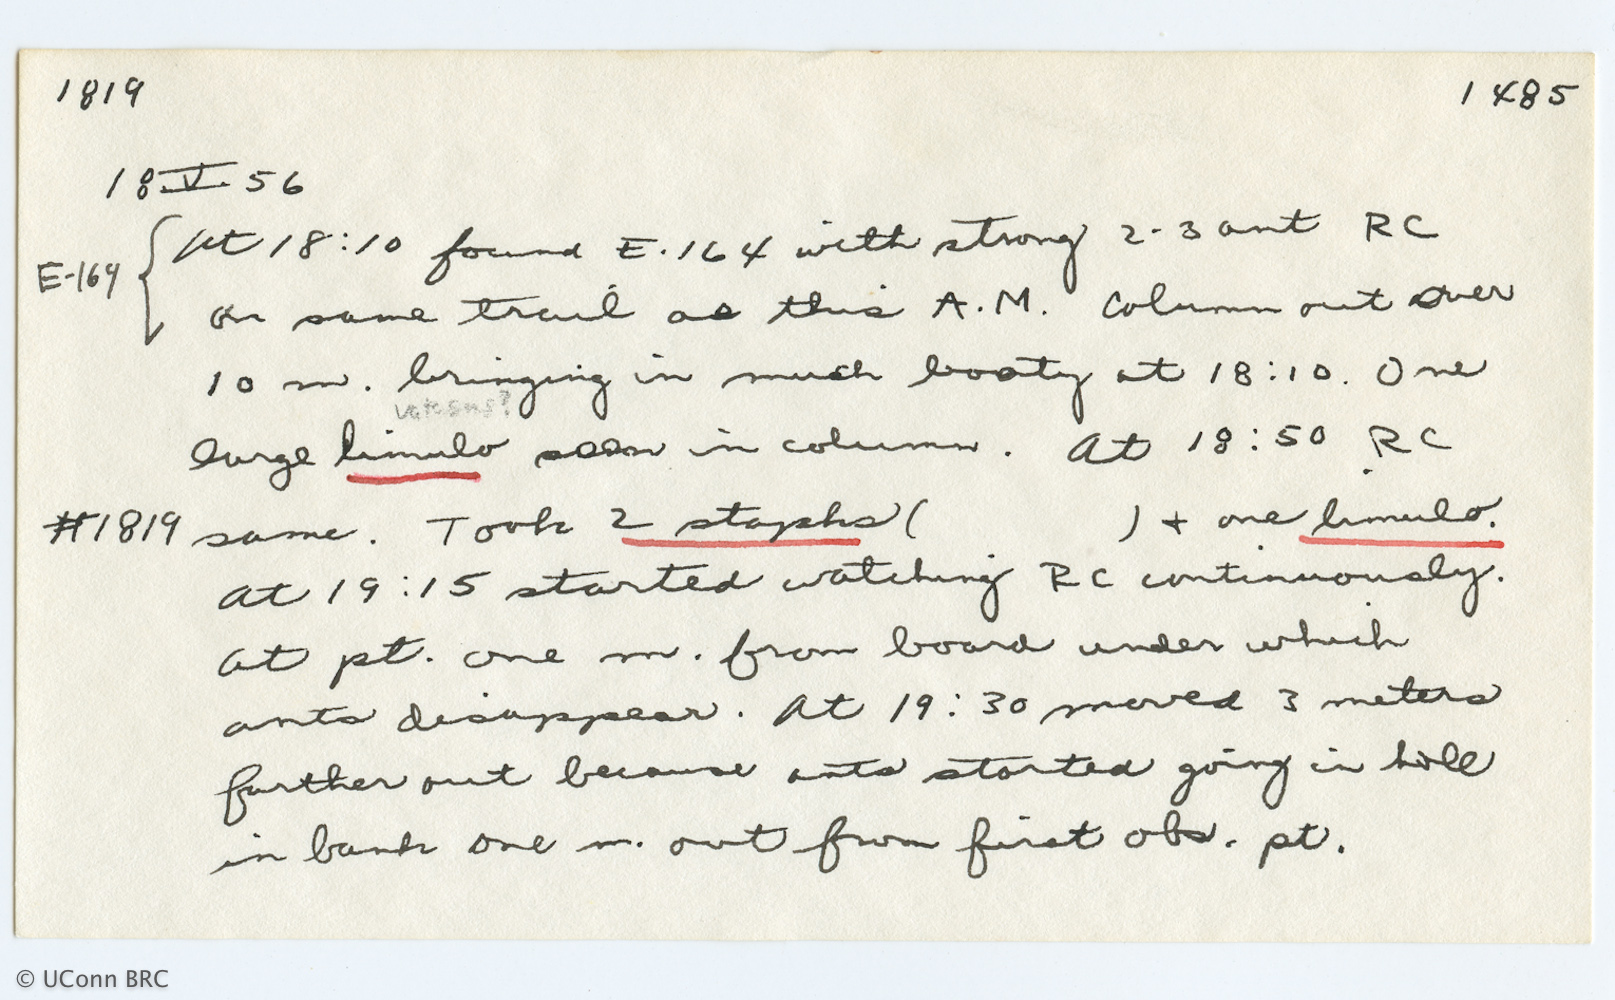 1819 1485
18 V 56
E-164 { At 18:10 found E-164 with strong 2-3 ant RC
on same trail as this A.M. Column out over
10 m. bringing in much booty at 18:10. One
large limulo seen in column. At 18:50 RC
#1819 same. Took 2 staphs ( ) + one limulo.
At 19:15 started watching RC continuously.
At pt. one m. from board under which
ants disappear. At 19:30 moved 3 meters
farther out because ants started going in hole
in bank one m. out from first obs. pt.
© UConn BRC